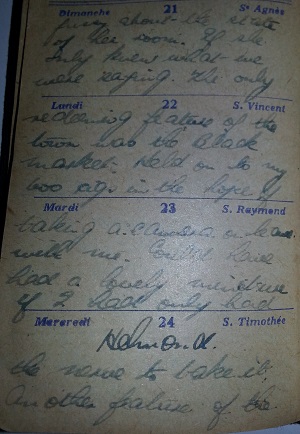 Dimanche 21 St Agnès
fussy about the state
of her room. If she
only knew what we
were saying. The only
Lundi 22 S. Vincent
redeeming feature of the
town was the Black
market. Held on to my
in the hope of
Mardi 23 S. Raymond
taking a camera on leave
with me. Could have
had a lovely miniature
if I had only had
Mercredi 24 S. Timothée
Helmond.
the nerve to take it.
Another feature of the